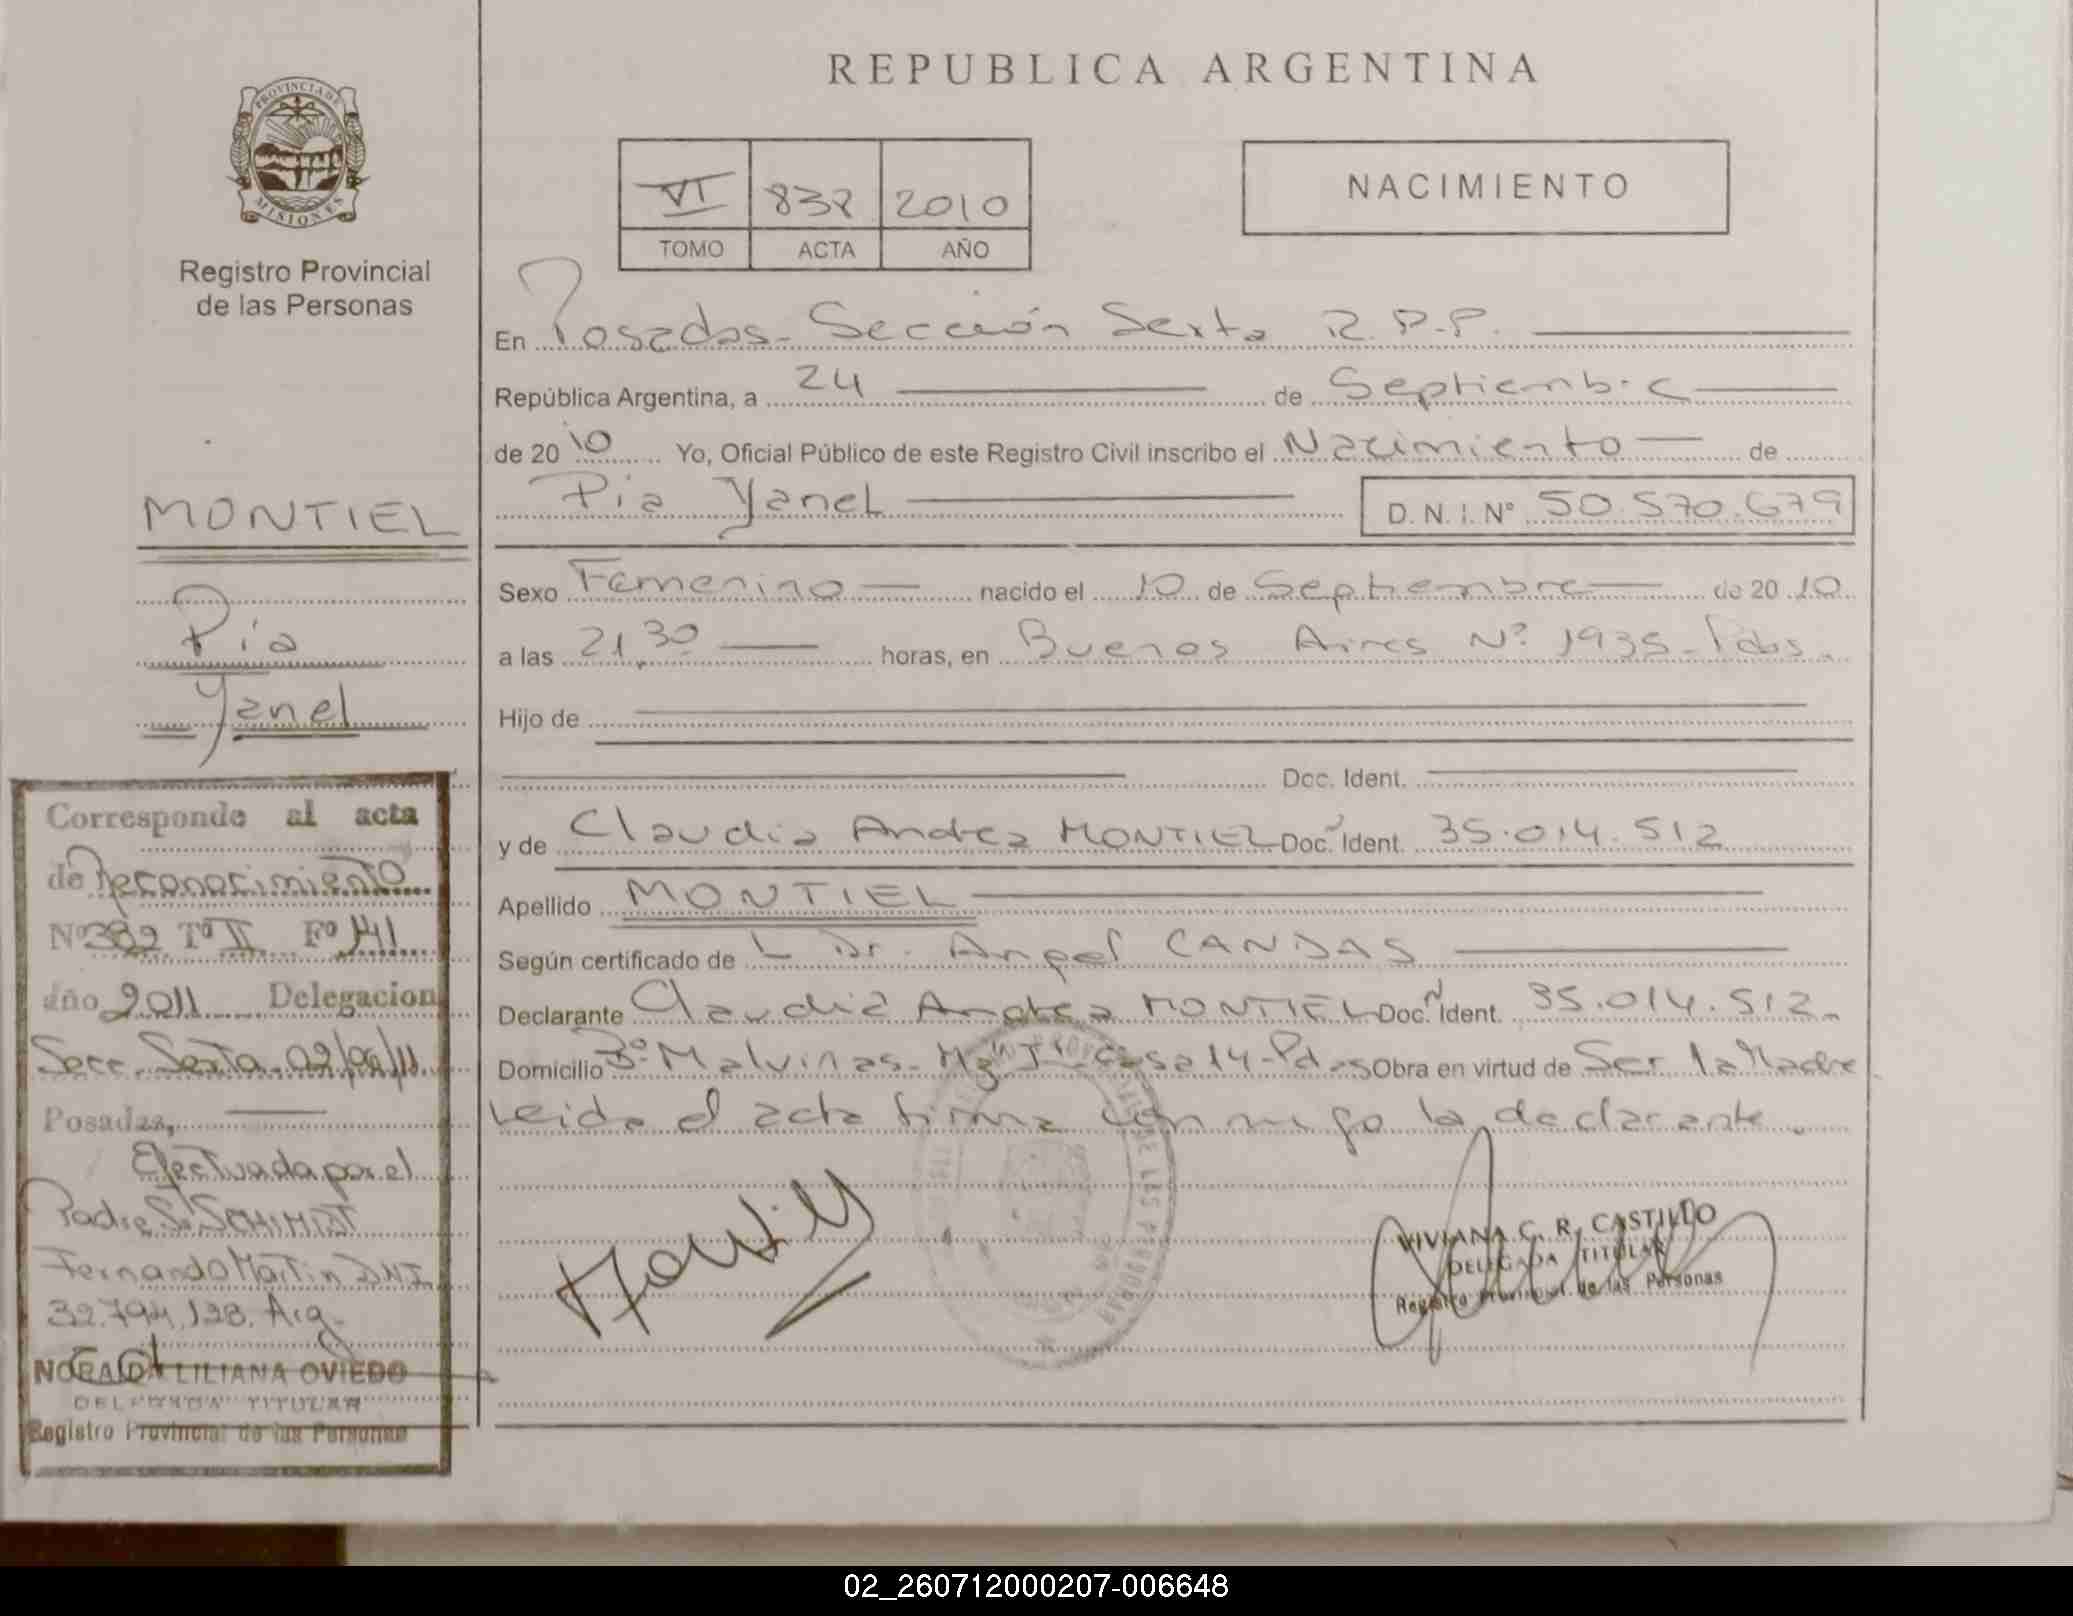 REPUBLICA ARGENTINA
PROVINCIA DE MISIONES
Registro Provincial
de las Personas
VI 838 2010
TOMO ACTA AÑO
NACIMIENTO
En Posadas - Sección Sexta R.P.P.
República Argentina, a 24 de Septiembre
de 2010 Yo, Oficial Público de este Registro Civil inscribo el Nacimiento de
Pia Yanel D.N.I. Nº 50.570.679
MONTIEL
Pía
Yanel
Sexo Femenino nacido el 10 de Septiembre de 2010
a las 21,30 horas, en Buenos Aires Nº 1935 - Pdas.
Hijo de
Doc. Ident.
y de Claudia Andrea MONTIEL Doc. Ident. 35.014.512
Apellido MONTIEL
Según certificado de Dr. Angel CANDAS
Declarante Claudia Andrea MONTIEL Doc. Ident. 35.014.512
Domicilio Bº Malvinas - Mz "J" casa 14 - Pdas Obra en virtud de Ser la Madre
Leida el acta firma conmigo la declarante.
Montiel
VIVIANA C. R. CASTILLO
DELEGADA TITULAR
Registro Provincial de las Personas
Corresponde al acta
de Reconocimiento
Nº 382 Tº II Fº 141
año 2011 Delegacion
Secc. Sexta 02/06/11
Posadas,
Efectuada por el
Padre Sr SCHIMIDT
Fernando Martin DNI
32.794.128. Arg.
LILIANA OVIEDO
DELEGADA TITULAR
Registro Provincial de las Personas
02_260712000207-006648